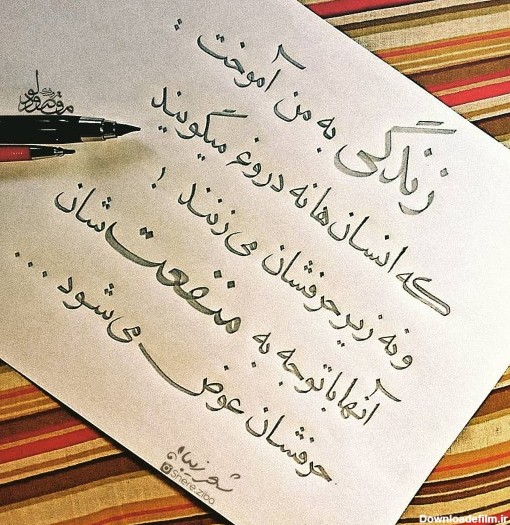 زندگی به من آموخت :
که انسان‌ها نه دروغ میگویند
و نه زیر حرفشان می‌زنند !
آنها با توجه به منفعت‌شان
حرفشان عوض می‌شود ...
شعر زیبا
@Shere.ziba
Downloadefilm.ir